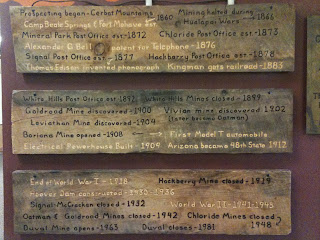 Prospecting began - Cerbat Mountains 1860 Mining halted during - 1866
Camp Beale Springs & Fort Mohave est. Hualapai Wars
Mineral Park Post Office est-1872 Chloride Post Office est-1873
Alexander G Bell patent for Telephone - 1876
Signal Post Office est - 1877 Hackberry Post Office est - 1878
Thomas Edison invented phonograph Kingman gets railroad - 1883
White Hills Post Office est 1892 White Hills Mines closed - 1899
Goldroad Mine discovered - 1900 Vivian mine discovered 1902
Leviathan Mine discovered - 1904 (later became Oatman)
Boriana Mine opened - 1908 First Model T automobile
Electrical Powerhouse Built - 1909 Arizona became 48th State 1912
End of World War I - 1918 Hackberry Mine closed - 1919
Hoover Dam constructed - 1930 - 1936
Signal-McCracken closed - 1932 World War II - 1941-1945
Oatman & Goldroad Mines closed - 1942 Chloride Mines closed 1948
Duval Mine opens - 1963 Duval closes - 1981